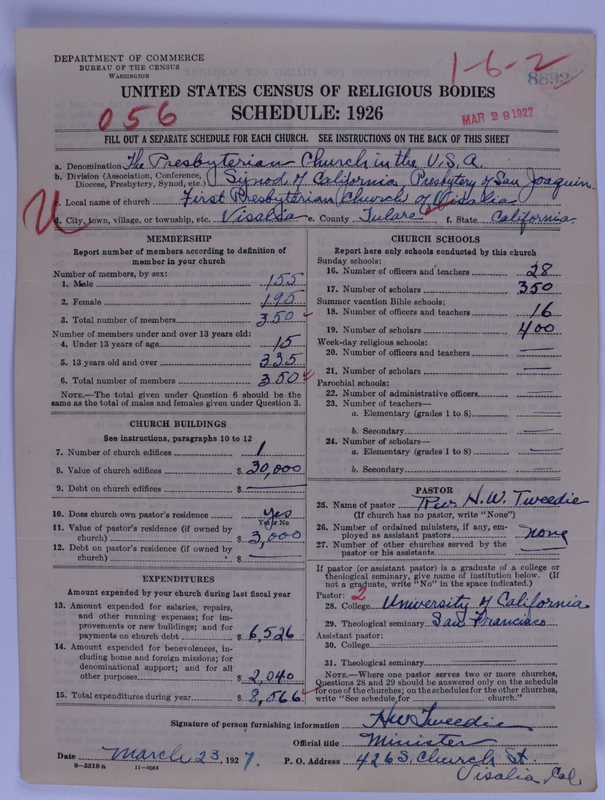 DEPARTMENT OF COMMERCE
BUREAU OF THE CENSUS
WASHINGTON
1-6-2
8892
UNITED STATES CENSUS OF RELIGIOUS BODIES
SCHEDULE: 1926
056
MAR 29 1927
FILL OUT A SEPARATE SCHEDULE FOR EACH CHURCH. SEE INSTRUCTIONS ON THE BACK OF THIS SHEET
a. Denomination The Presbyterian Church in the U.S.A.
b. Division (Association, Conference, Diocese, Presbytery, Synod, etc.) Synod of California, Presbytery of San Joaquin.
c. Local name of church First Presbyterian Church of Visalia
U
d. City, town, village, or township, etc. Visalia e. County Tulare f. State California
MEMBERSHIP
Report number of members according to definition of member in your church
Number of members, by sex:
1. Male 155
2. Female 195
3. Total number of members 350
Number of members under and over 13 years old:
4. Under 13 years of age 15
5. 13 years old and over 335
6. Total number of members 350
NOTE.—The total given under Question 6 should be the same as the total of males and females given under Question 3.
CHURCH BUILDINGS
See instructions, paragraphs 10 to 12
7. Number of church edifices 1
8. Value of church edifices $ 30,000
9. Debt on church edifices $ —
10. Does church own pastor's residence? yes
Yes or No
11. Value of pastor's residence (if owned by church) $ 3,000
12. Debt on pastor's residence (if owned by church) $ —
EXPENDITURES
Amount expended by your church during last fiscal year
13. Amount expended for salaries, repairs, and other running expenses; for improvements or new buildings; and for payments on church debt $ 6,526
14. Amount expended for benevolences, including home and foreign missions; for denominational support; and for all other purposes $ 2,040
15. Total expenditures during year $ 8,566
CHURCH SCHOOLS
Report here only schools conducted by this church
Sunday schools:
16. Number of officers and teachers 28
17. Number of scholars 350
Summer vacation Bible schools:
18. Number of officers and teachers 16
19. Number of scholars 400
Week-day religious schools:
20. Number of officers and teachers —
21. Number of scholars —
Parochial schools:
22. Number of administrative officers —
23. Number of teachers—
a. Elementary (grades 1 to 8) —
b. Secondary —
24. Number of scholars—
a. Elementary (grades 1 to 8) —
b. Secondary —
PASTOR
25. Name of pastor Rev. H. W. Tweedie
(If church has no pastor, write "None")
26. Number of ordained ministers, if any, employed as assistant pastors none
27. Number of other churches served by the pastor or his assistants —
If pastor (or assistant pastor) is a graduate of a college or theological seminary, give name of institution below. (If not a graduate, write "No" in the space indicated.)
Pastor: 2
28. College University of California
29. Theological seminary San Francisco
Assistant pastor:
30. College
31. Theological seminary
NOTE.—Where one pastor serves two or more churches, Questions 28 and 29 should be answered only on the schedule for one of the churches; on the schedules for the other churches, write "See schedule for church."
Signature of person furnishing information HW Tweedie
Official title Minister
Date March 23, 1927. P. O. Address 426 S. Church St.
Visalia, Cal.
8—5518a 11—9064